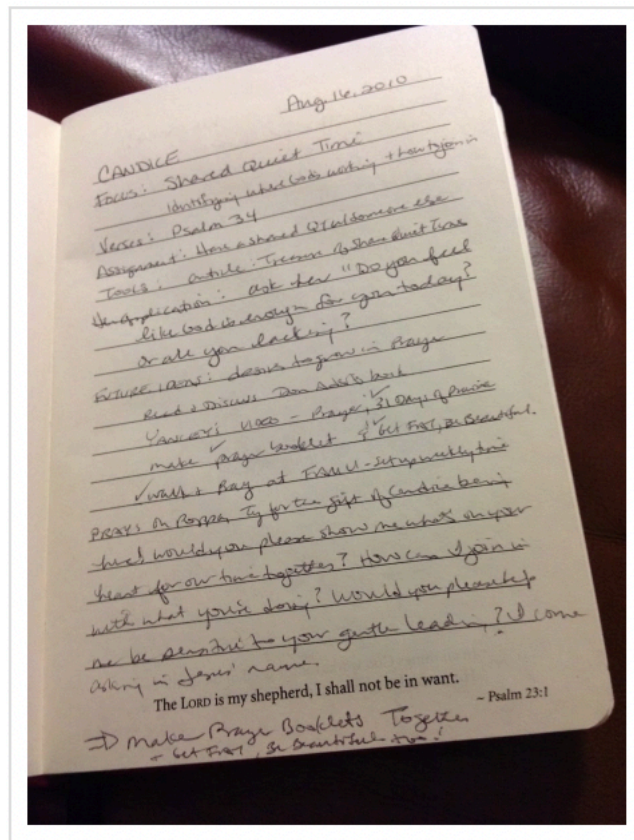 Aug. 16, 2010
CANDICE
Focus: Shared Quiet Time
Identifying where God's working + how to join in
Verses: Psalm 34
Assignment: Have a shared QT w/ someone else
Tools: article: Treasure of Shared Quiet Times
Application: ask her "Do you feel
like God is enough for you today?
or are you lacking?
FUTURE IDEAS: desires to grow in Prayer
Read & Discuss Don book
YANCEY'S VIDEO - Prayer, 31 Days of Praise
make prayer booklet & Get Free, Be Beautiful.
✓ walk + Pray at FAMU - set up weekly time
PRAYS ON Ty for the gift of Candice being
here! would you please show me what's on your
heart for our time together? How can I join in
with what you're doing? Would you please help
me be sensitive to your gentle leading? I come
asking in Jesus' name.
The LORD is my shepherd, I shall not be in want.
~ Psalm 23:1
⇒ Make Prayer Booklets Together
+ Get Free, Be Beautiful too!